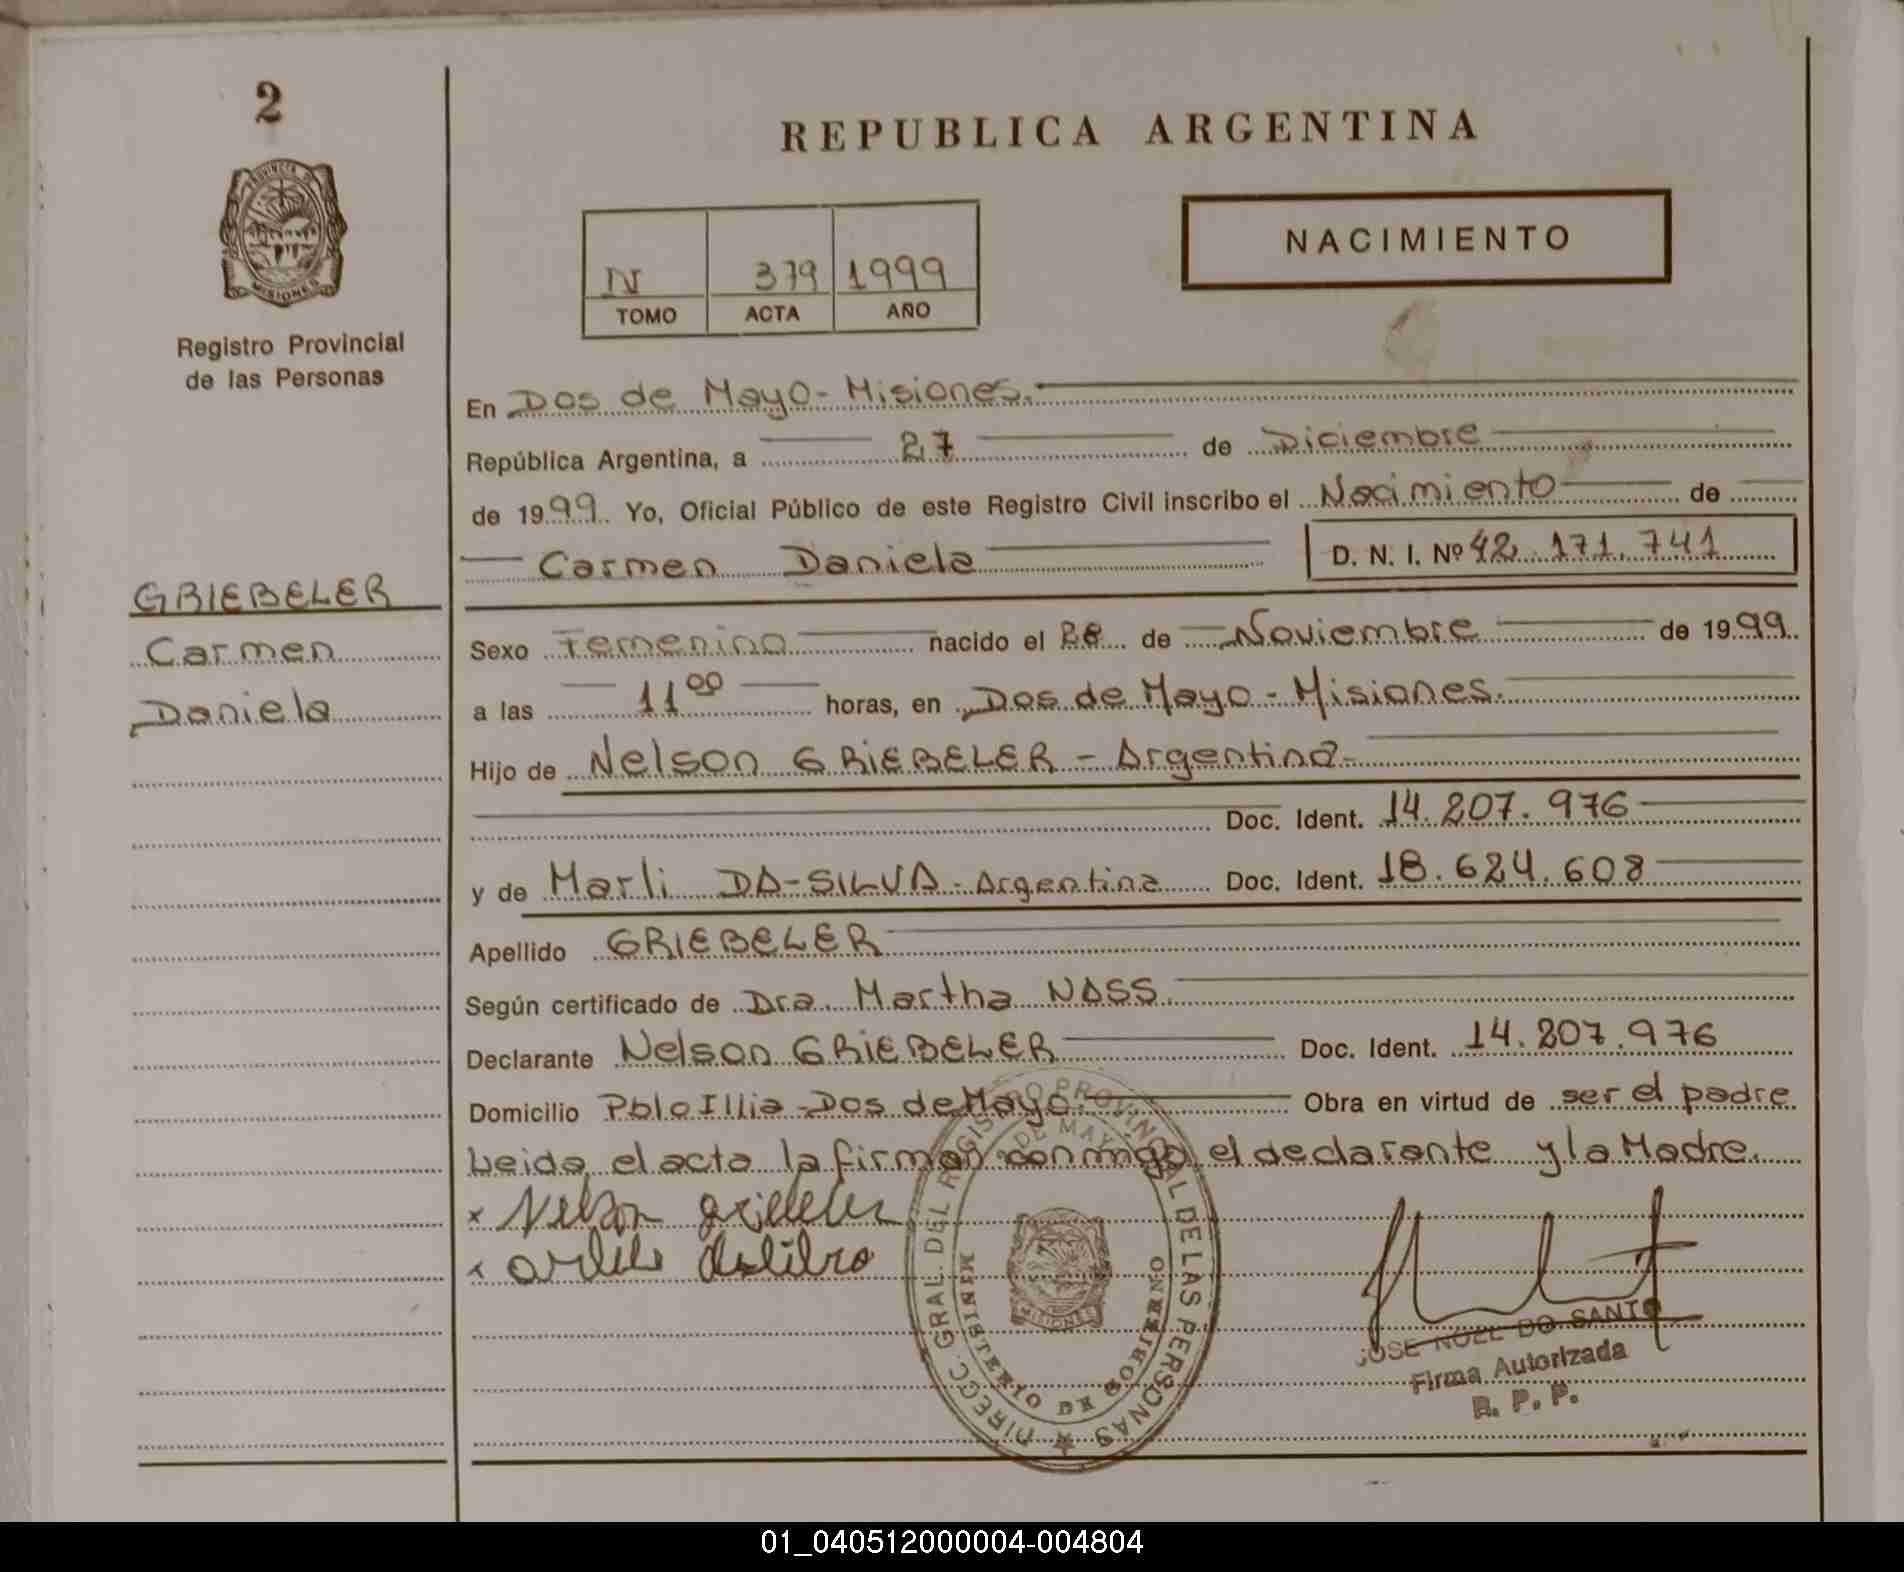 2
PROVINCIA DE
MISIONES
Registro Provincial
de las Personas
GRIEBELER
Carmen
Daniela
REPUBLICA ARGENTINA
NACIMIENTO
N 379 1999
TOMO ACTA AÑO
En Dos de Mayo - Misiones.
República Argentina, a 27 de Diciembre
de 1999. Yo, Oficial Público de este Registro Civil inscribo el Nacimiento de
Carmen Daniela D. N. I. Nº 42.171.741
Sexo Femenino nacido el 28 de Noviembre de 1999.
a las 11 00 horas, en Dos de Mayo - Misiones.
Hijo de Nelson GRIEBELER - Argentina -
Doc. Ident. 14.207.976
y de Marli DA-SILVA - Argentina Doc. Ident. 18.624.608
Apellido GRIEBELER
Según certificado de Dra. Martha NASS
Declarante Nelson GRIEBELER Doc. Ident. 14.207.976
Domicilio Pblo Illia - Dos de Mayo. Obra en virtud de ser el padre
Leida el acta la firman conmigo el declarante y la Madre.
x Nelson Griebeler
x
DIRECC. GRAL. DEL REGISTRO PROVINCIAL DE LAS PERSONAS
DE MAYO
MINISTERIO DE GOBIERNO
MISIONES
JOSE NOEL DO SANTO
Firma Autorizada
R. P. P.
01_040512000004-004804